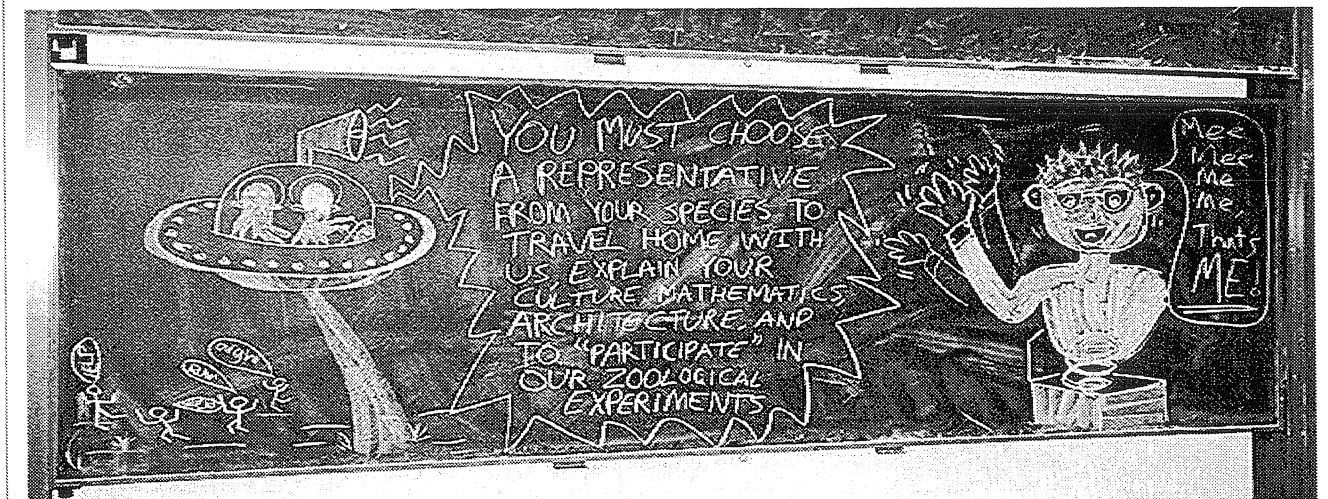 YOU MUST CHOOSE
A REPRESENTATIVE
FROM YOUR SPECIES TO
TRAVEL HOME WITH
US EXPLAIN YOUR
CULTURE, MATHEMATICS,
ARCHITECTURE, AND
TO "PARTICIPATE" IN
OUR ZOOLOGICAL
EXPERIMENTS
Mee
Mee
Me
Me,
That's
ME!